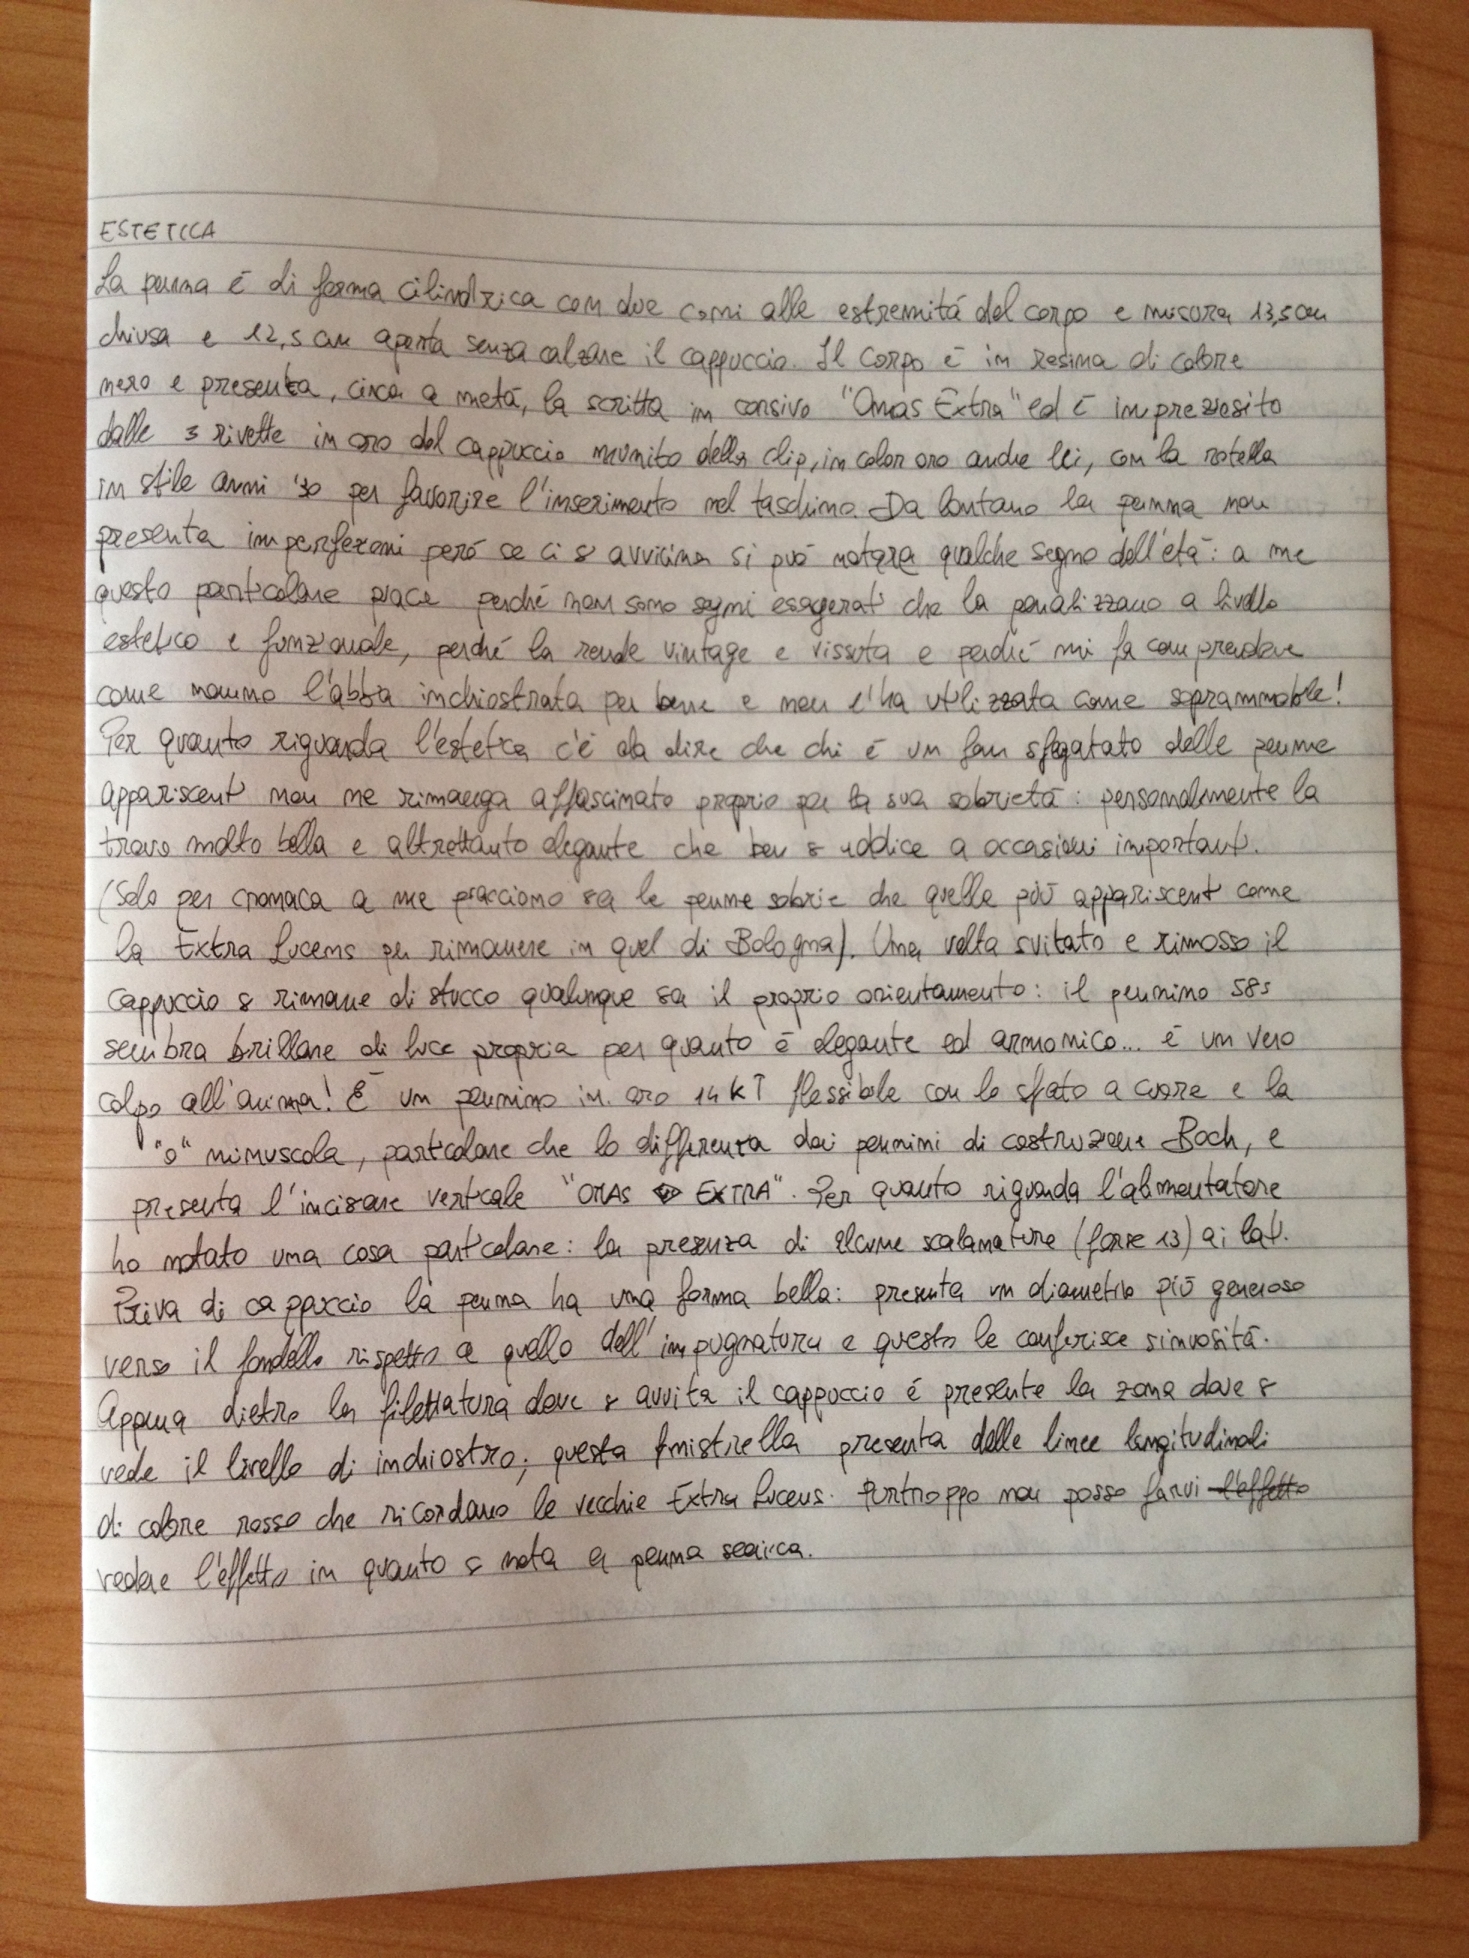 ESTETICA
La penna è di forma cilindrica con due coni alle estremità del corpo e misura 13,5 cm
chiusa e 12,5 cm aperta senza calzare il cappuccio. Il corpo è in resina di colore
nero e presenta, circa a metà, la scritta in corsivo "Omas Extra" ed è impreziosito
dalle 3 rivette in oro del cappuccio munito della clip, in color oro anche lei, con la rotella
in stile anni '30 per favorire l'inserimento nel taschino. Da lontano la penna non
presenta imperfezioni però se ci si avvicina si può notare qualche segno dell'età: a me
questo particolare piace perché non sono segni esagerati che la penalizzano a livello
estetico e funzionale, perché la rende vintage e vissuta e perché mi fa comprendere
come nonno l'abbia inchiostrata per bene e non l'ha utilizzata come soprammobile!
Per quanto riguarda l'estetica c'è da dire che chi è un fan sfegatato delle penne
appariscenti non ne rimanga affascinato proprio per la sua sobrietà: personalmente la
trovo molto bella e altrettanto elegante che ben si addice a occasioni importanti.
(Solo per cronaca a me piacciono sia le penne sobrie che quelle più appariscenti come
la Extra Lucens per rimanere in quel di Bologna). Una volta svitato e rimosso il
cappuccio si rimane di stucco qualunque sia il proprio orientamento: il pennino 585
sembra brillare di luce propria per quanto è elegante ed armonico... è un vero
colpo all'anima! È un pennino in oro 14 KT flessibile con lo sfiato a cuore e la
"o" minuscola, particolare che lo differenza dai pennini di costruzione Boch, e
presenta l'incisione verticale "OMAS EXTRA". Per quanto riguarda l'alimentatore
ho notato una cosa particolare: la presenza di alcune scalanature (forse 13) ai lati.
Priva di cappuccio la penna ha una forma bella: presenta un diametro più generoso
verso il fondello rispetto a quello dell'impugnatura e questo le conferisce sinuosità.
Appena dietro la filettatura dove si avvita il cappuccio è presente la zona dove si
vede il livello di inchiostro; questa finistrella presenta delle linee longitudinali
di colore rosso che ricordano le vecchie Extra Lucens. Purtroppo non posso farvi l'effetto
vedere l'effetto in quanto si nota a penna scarica.